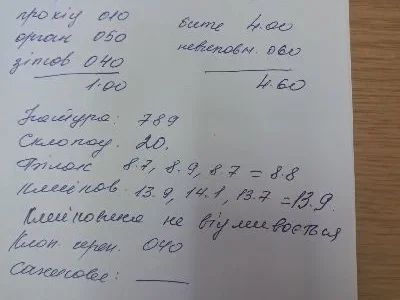 прохід 010
орган 050
зіпсов 040
1.00
бите 4.00
невиповн. 060
4.60
Натура: 789
Склопод. 20.
Білок 8.7, 8.9, 8.7 = 8.8
Клейков. 13.9, 14.1, 13.7 = 13.9.
Клейковина не відмивається
Клоп. череп. 040
Сажкове: —